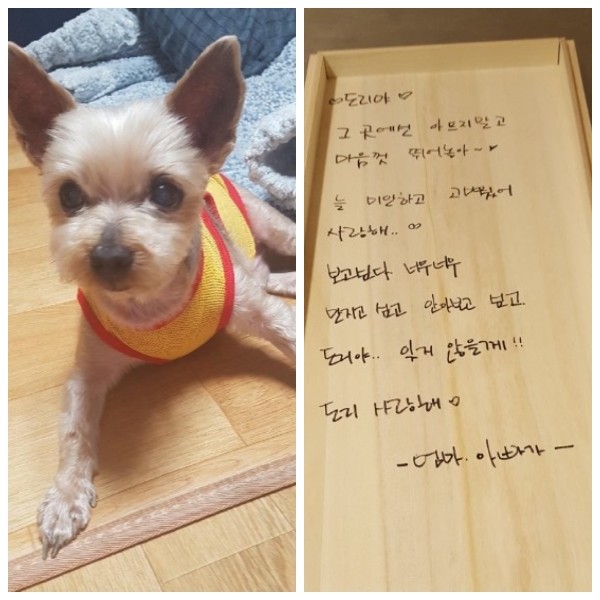 ♡도리야♡
그 곳에선 아프지말고
마음껏 뛰어놀아~♥
늘 미안하고 고마웠어
사랑해.. ♡
보고싶다 너무너무
만지고 싶고 안아보고 싶고
도리야.. 잊지 않을께!!
도리 사랑해♡
- 엄마. 아빠가 -